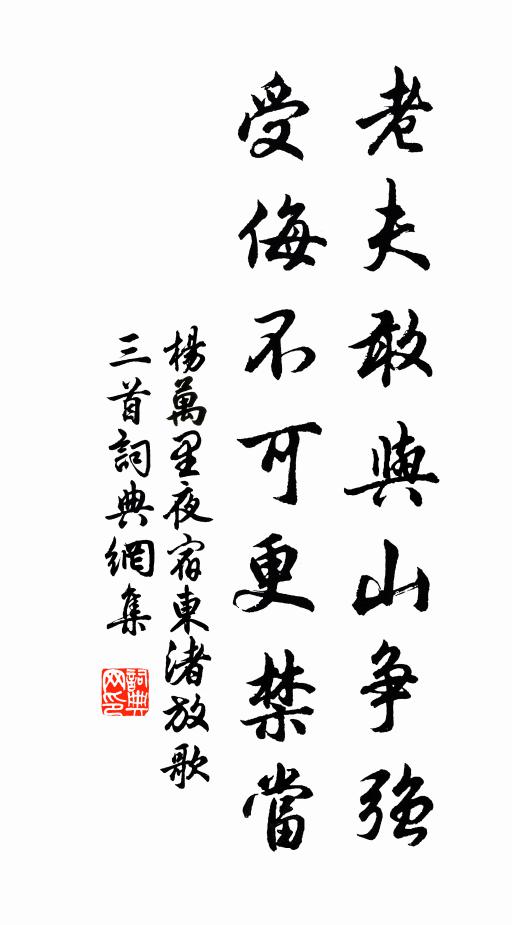 老夫敢與山争強
受侮不可更禁當
楊萬里夜宿東渚放歌
三首詞典網集
詞典
网印